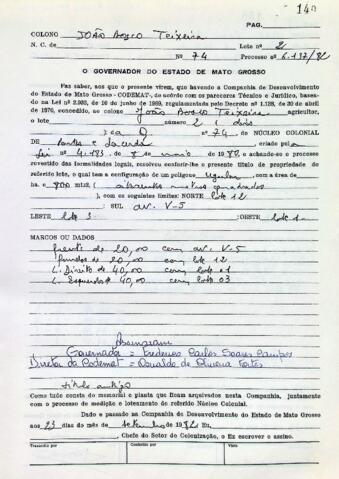 140
PAG.
COLONO JOÃO BOSCO TEIXEIRA
N. C. de Lote nº 2
Nº 74 Processo nº 6.137/82
O GOVERNADOR DO ESTADO DE MATO GROSSO
Faz saber, aos que o presente virem, que havendo a Companhia de Desenvolvimento
do Estado de Mato Grosso - CODEMAT-, de acordo com os pareceres Técnico e Jurídico, basea-
do na Lei nº 2.935, de 16 de junho de 1969, regulamentada pelo Decreto nº 1.128, de 30 de abril
de 1970, concedido, ao colono João Bosco Teixeira agricultor,
o lote número 2 (dois
) Q nº 74 do NÚCLEO COLONIAL
DE Pontes e Lacerda criado pela
Lei 4.483 de 8 de maio de 1982 e achando-se o processo
revestido das formalidades legais, resolveu conferir-lhe o presente título de propriedade do
referido lote, o qual tem a configuração de um polígono regular com a área de
ha. e 800 mts2 ( oitocentos metros quadrados
), com os seguintes limites: NORTE lote 12
SUL av. V-5
LESTE lote 3 OESTE lote 1
MARCOS OU DADOS
frente de 20,00 com av. V-5
fundos de 20,00 com lote 12
L. Direito de 40,00 com lote 01
L. Esquerdo de 40,00 com lote 03
Assinaram
Governador = Frederico Carlos Soares Campos
Diretor da Codemat = Osvaldo de Oliveira Fortes
título antigo
Como tudo consta do memorial e planta que ficam arquivados nesta Companhia, juntamente
com o processo de medição e loteamento do referido Núcleo Colonial.
Dado e passado na Companhia de Desenvolvimento do Estado de Mato Grosso
aos 23 dias do mês de setembro de 1982 Eu,
, Chefe do Setor de Colonização, o Fiz escrever e assino.
Transcrito por Conferido por Visto